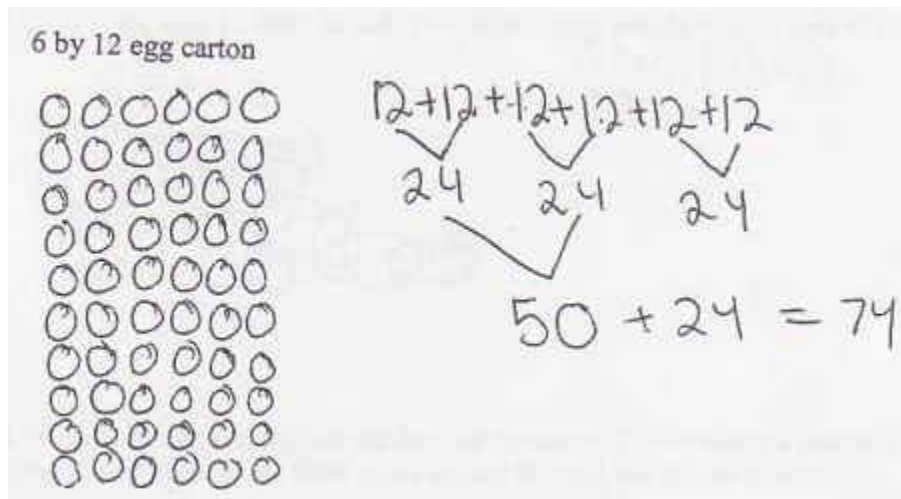 6 by 12 egg carton
12+12+12+12+12+12
24 24 24
50 + 24 = 74